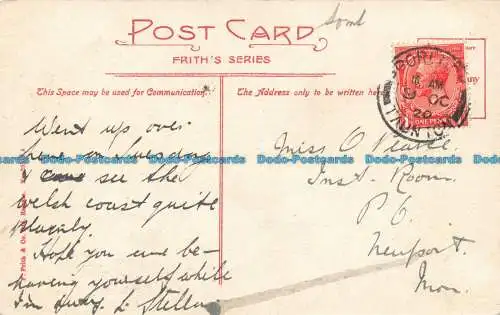 Somt
POST CARD
FRITH'S SERIES
This Space may be used for Communication.
The Address only to be written here
PORLOCK
AM
9 OC
20
TAUNTON
ONE PENNY
Went up over
here on Tuesday
& see the
welsh coast quite
plainly.
Hope you are be-
having yourself while
I'm away. L. Stella.
Miss O Pearce.
Inst. Room.
P. O.
Newport.
Mon.
F. Frith & Co.
Dodo-Postcards Dodo-Postcards Dodo-Postcards Dodo-Postcards